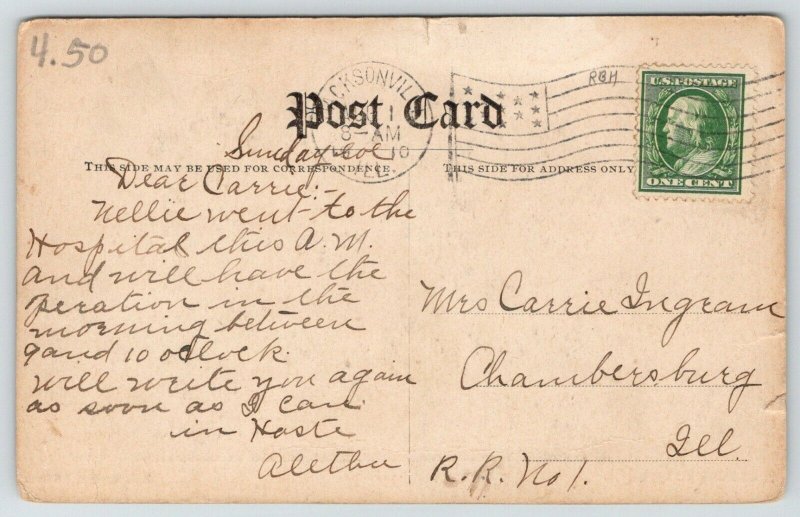 4.50
RBM
U.S. POSTAGE
ONE CENT
CKSONVIL
8-AM
10
Post Card
THIS SIDE MAY BE USED FOR CORRESPONDENCE.
THIS SIDE FOR ADDRESS ONLY
Sunday eve
Dear Carrie:-
Nellie went to the
Hospital this A.M.
and will have the
peration in the
morning between
9 and 10 oclock.
will write you again
as soon as I can.
in Haste
Aletha
Mrs Carrie Ingram
Chambersburg
Ill.
R.R. No 1.